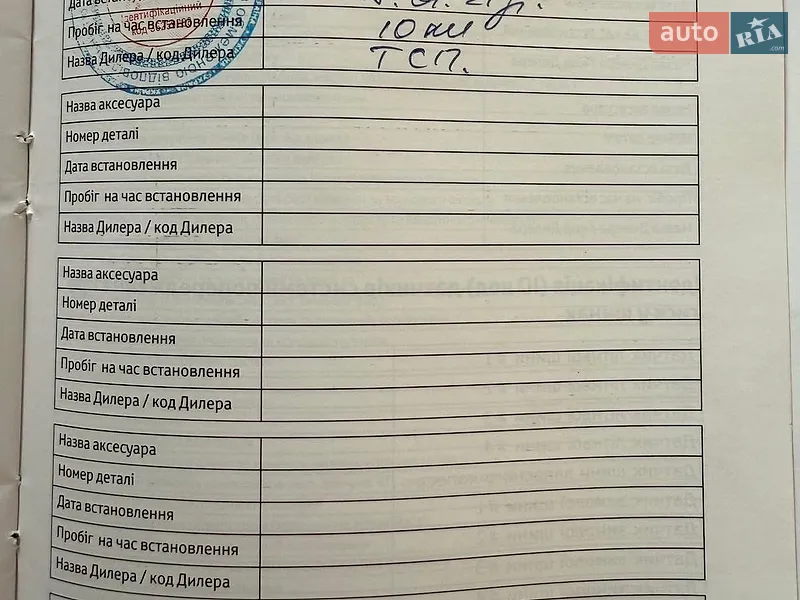 Ідентифікаційний
Пробіг на час встановлення 10 км
Назва Дилера / код Дилера ТСП.
auto RIA .com
Назва аксесуара
Номер деталі
Дата встановлення
Пробіг на час встановлення
Назва Дилера / код Дилера
Назва аксесуара
Номер деталі
Дата встановлення
Пробіг на час встановлення
Назва Дилера / код Дилера
Назва аксесуара
Номер деталі
Дата встановлення
Пробіг на час встановлення
Назва Дилера / код Дилера